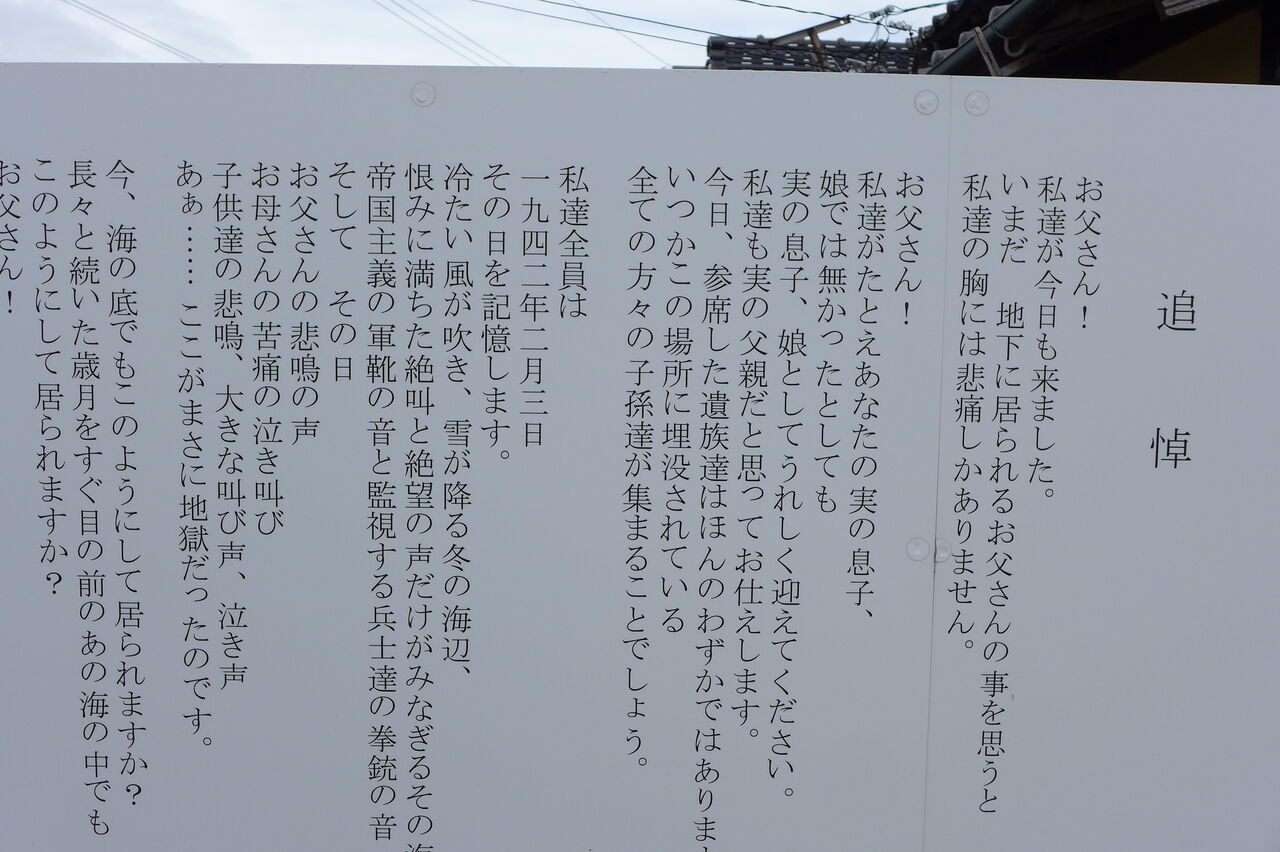 追悼
お父さん！
私達が今日も来ました。
いまだ　地下に居られるお父さんの事を思うと
私達の胸には悲痛しかありません。
お父さん！
私達がたとえあなたの実の息子、
娘では無かったとしても
実の息子、娘としてうれしく迎えてください。
私達も実の父親だと思ってお仕えします。
今日、参席した遺族達はほんのわずかではありま
いつかこの場所に埋没されている
全ての方々の子孫達が集まることでしょう。
私達全員は
一九四二年二月三日
その日を記憶します。
冷たい風が吹き、雪が降る冬の海辺、
恨みに満ちた絶叫と絶望の声だけがみなぎるその海
帝国主義の軍靴の音と監視する兵士達の拳銃の音
そして　その日
お父さんの悲鳴の声
お母さんの苦痛の泣き叫び
子供達の悲鳴、大きな叫び声、泣き声
あぁ……ここがまさに地獄だったのです。
今、海の底でもこのようにして居られますか？
長々と続いた歳月をすぐ目の前のあの海の中でも
このようにして居られますか？
お父さん！